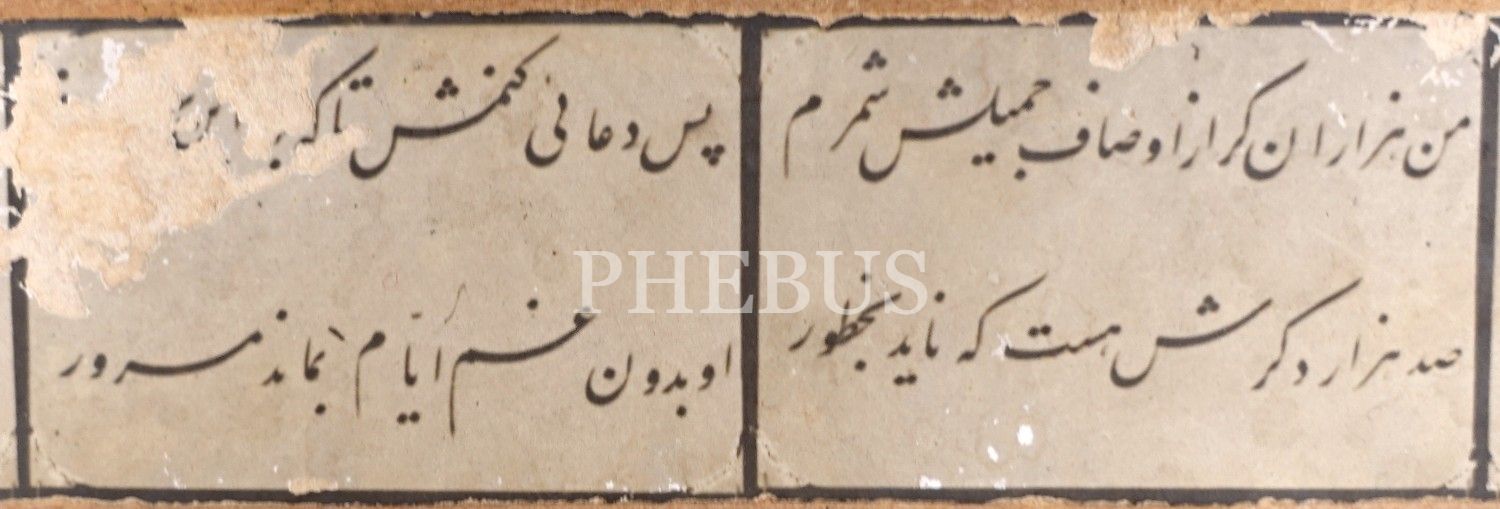 من هزاران گر از اوصاف جمیلش شمرم
صد هزار دگرش هست که ناید بخطور
پس دعائی کنمش تا که
او بدون غم ایام بماند مسرور
PHEBUS